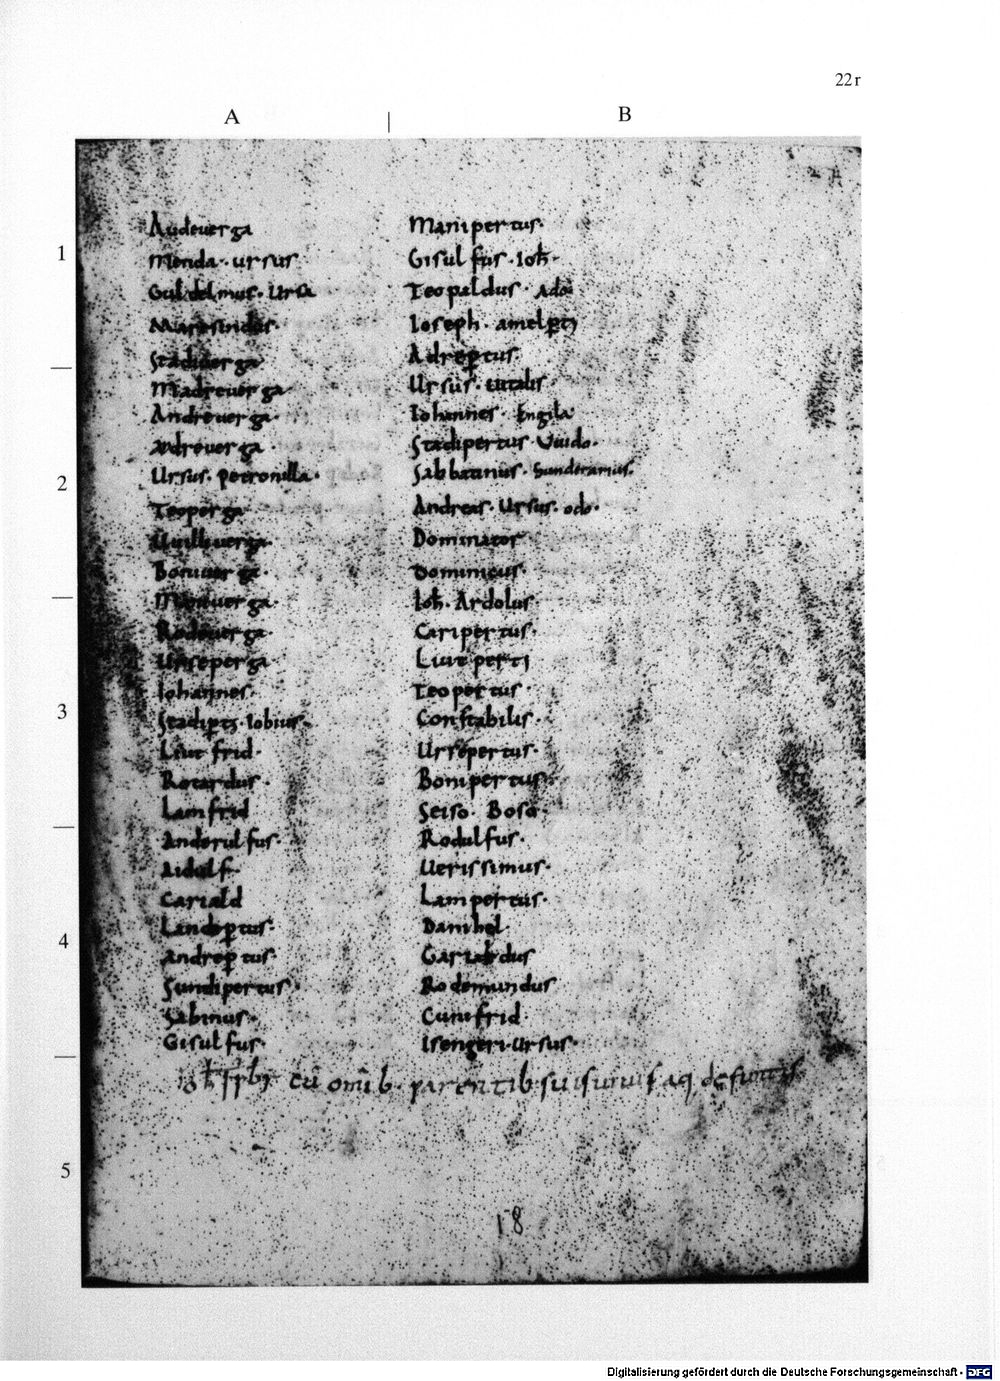 22r
A
B
Audeuerga
Menda · ursus
Guldelmus · Ursa
Stadiuerga
Madreuerga
Andreuerga ·
Andreuerga ·
Ursus · petronilla ·
Teoperga
Uuilliuerga ·
Boniuerga ·
Rodeuerga ·
Urseperga ·
Iohannes ·
Stadiptꝫ · Iobius ·
Liutfrid ·
Rotardus ·
Lamfrid
Anderulfus ·
Aidulf
Cariald
Landep̱tus ·
Andrep̱tus ·
Sundipertus ·
Sabinus ·
Gisulfus ·
Manipertus ·
Gisulfus · Ioħ ·
Teopaldus · Ado
Ioseph · amelp̱tꝫ
Adrep̱tus ·
Ursus · uitalis
Iohannes · Engila
Stadipertus · Uuido ·
Sabbatinus · Sunderarius ·
Andreas · Ursus · odo ·
Dominator
Dominicus ·
Ioħ · Ardolus ·
Caripertus ·
Liutpertꝫ
Teopertus ·
Constabilis ·
Ursepertus ·
Bonipertus
Seiso · Boso ·
Rodulfus ·
Uerissimus ·
Lampertus ·
Danihel
Gariardus
Rodemundus
Cunifrid
Isengeri · Ursus ·
cū omīb · parentib · suis uiuis aq defunctis
18
1
2
3
4
5
Digitalisierung gefördert durch die Deutsche Forschungsgemeinschaft · DFG